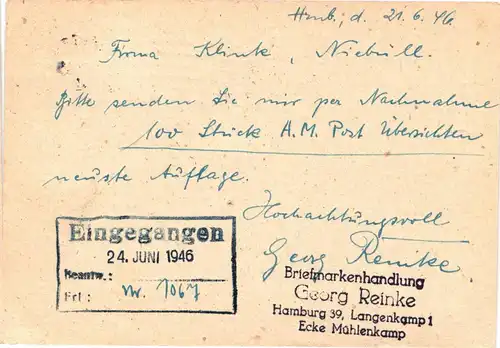 Hmb., d. 21.6.46.
Firma Klink, Niebüll.
Bitte senden Sie mir per Nachnahme
100 Stück A.M. Post Übersichten
neuste Auflage.
Hochachtungsvoll
Georg Reinke
Eingegangen
24. JUNI 1946
Beantw.:
Erl: Nr. 1067
Briefmarkenhandlung
Georg Reinke
Hamburg 39, Langenkamp 1
Ecke Mühlenkamp